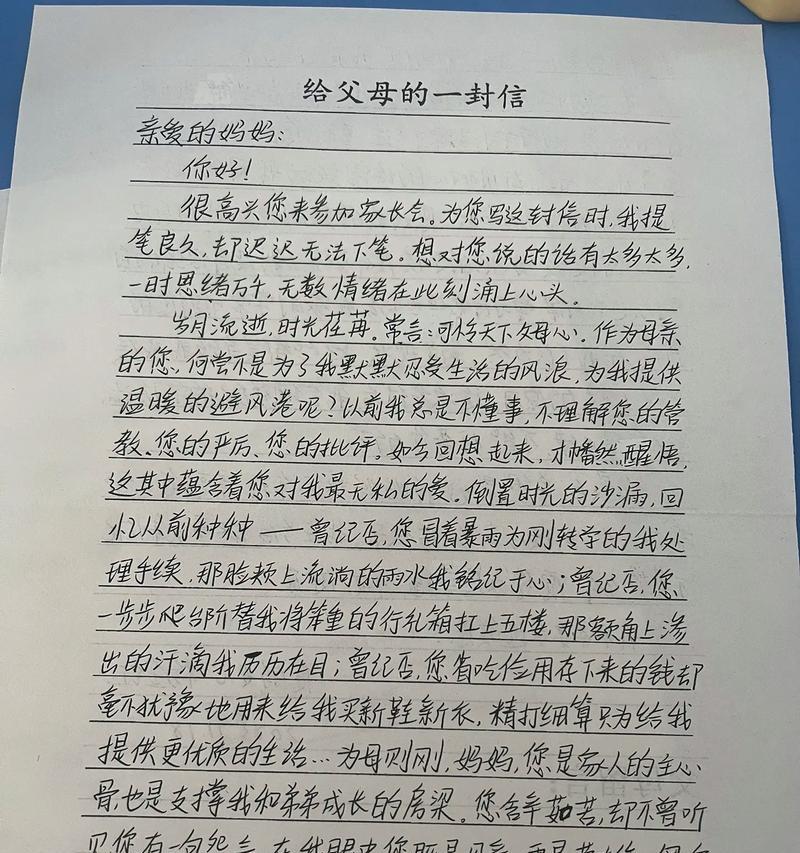 给父母的一封信
亲爱的妈妈:
你好!
很高兴您来参加家长会。为您写这封信时,我提
笔良久,却迟迟无法下笔。想对您说的话有太多太多,
一时思绪万千,无数情绪在此刻涌上心头。
岁月流逝,时光荏苒。常言:可怜天下父母心。作为母亲
的您,何尝不是为了我默默忍受生活的风浪,为我提供
温暖的避风港呢?以前我总是不懂事,不理解您的管
教、您的严厉、您的批评。如今回想起来,才幡然醒悟,
这其中蕴含着您对我最无私的爱。倒置时光的沙漏,回
忆从前种种——曾记否,您冒着暴雨为刚转学的我处
理手续,那脸颊上流淌的雨水我铭记于心;曾记否,您
一步步爬台阶替我将笨重的行礼箱扛上五楼,那额角上渗
出的汗滴我历历在目;曾记否,您省吃俭用存下来的钱却
毫不犹豫地用来给我买新鞋新衣,精打细算只为给我
提供更优质的生活...为母则刚,妈妈,您是家人的主心
骨,也是支撑我和弟弟成长的房梁。您含辛茹苦,却不曾听
见您有一句怨言,在我眼中您既是